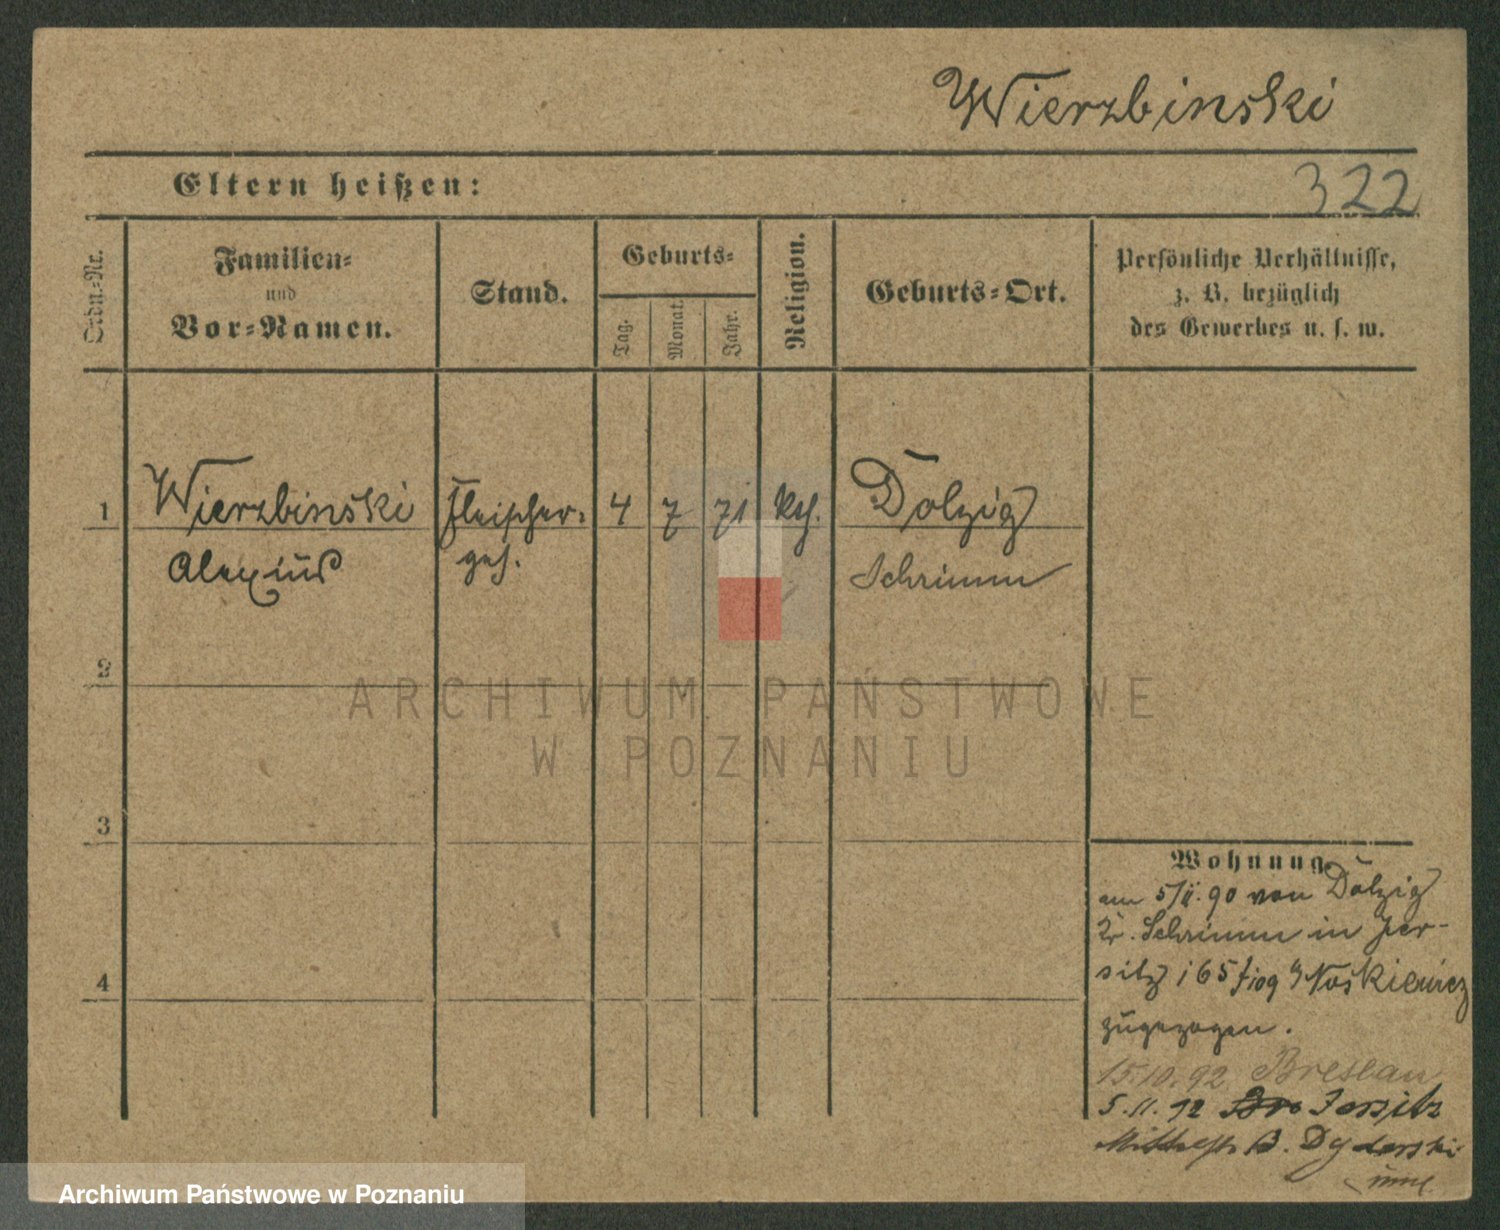 Wierzbinski
Eltern heißen:
322
Ordn.-Nr.
Familien-
und
Vor-Namen.
Stand.
Geburts-
Tag.
Monat.
Jahr.
Religion.
Geburts-Ort.
Persönliche Verhältnisse,
z. B. bezüglich
des Gewerbes u. s. w.
1
Wierzbinski
Alexius
Fleischer-
ges.
4
7
71
kth.
Dolzig
Schrimm
2
3
4
Wohnung.
am 5/II. 90 von Dolzig
Kr. Schrimm in Jer-
sitz 165 Noskiewicz
zugezogen.
15.10.92 Breslau
5.11.92 Jersitz
B. Dyderski
ARCHIWUM PAŃSTWOWE
W POZNANIU
Archiwum Państwowe w Poznaniu